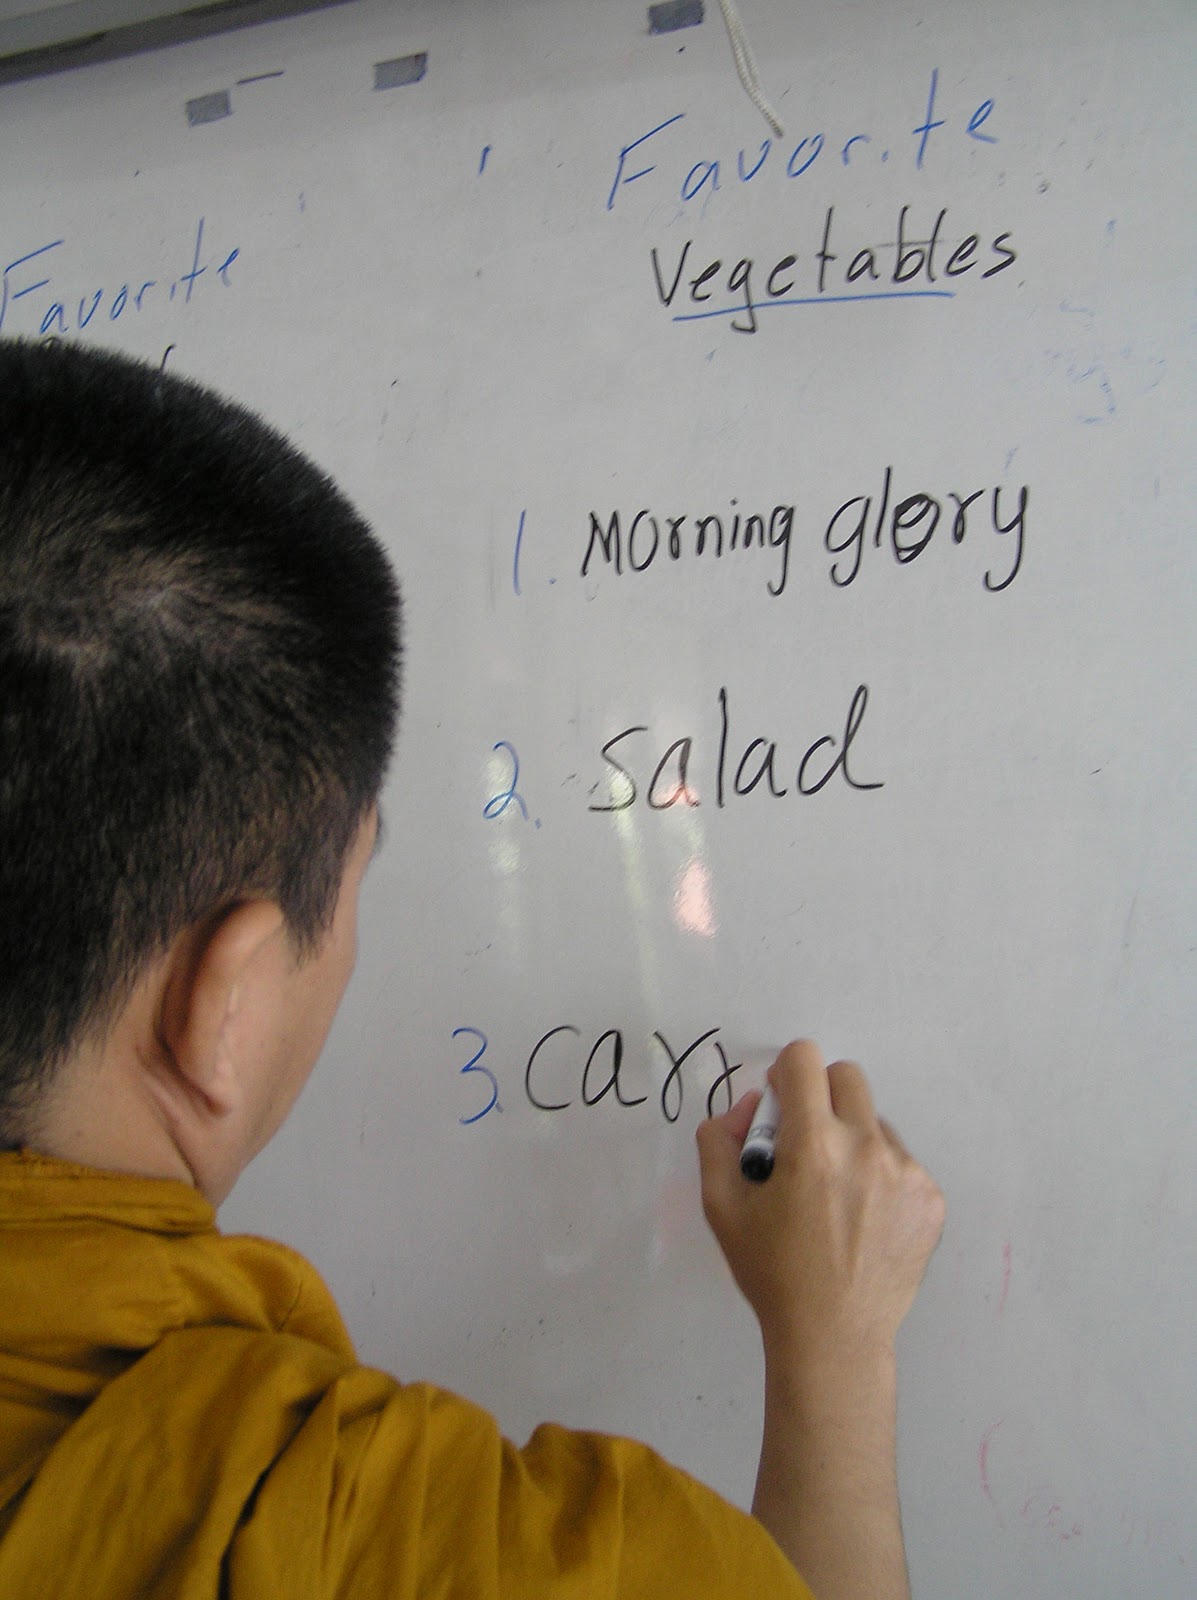 Favorite
Favorite
Vegetables
1. Morning glory
2. salad
3. carr